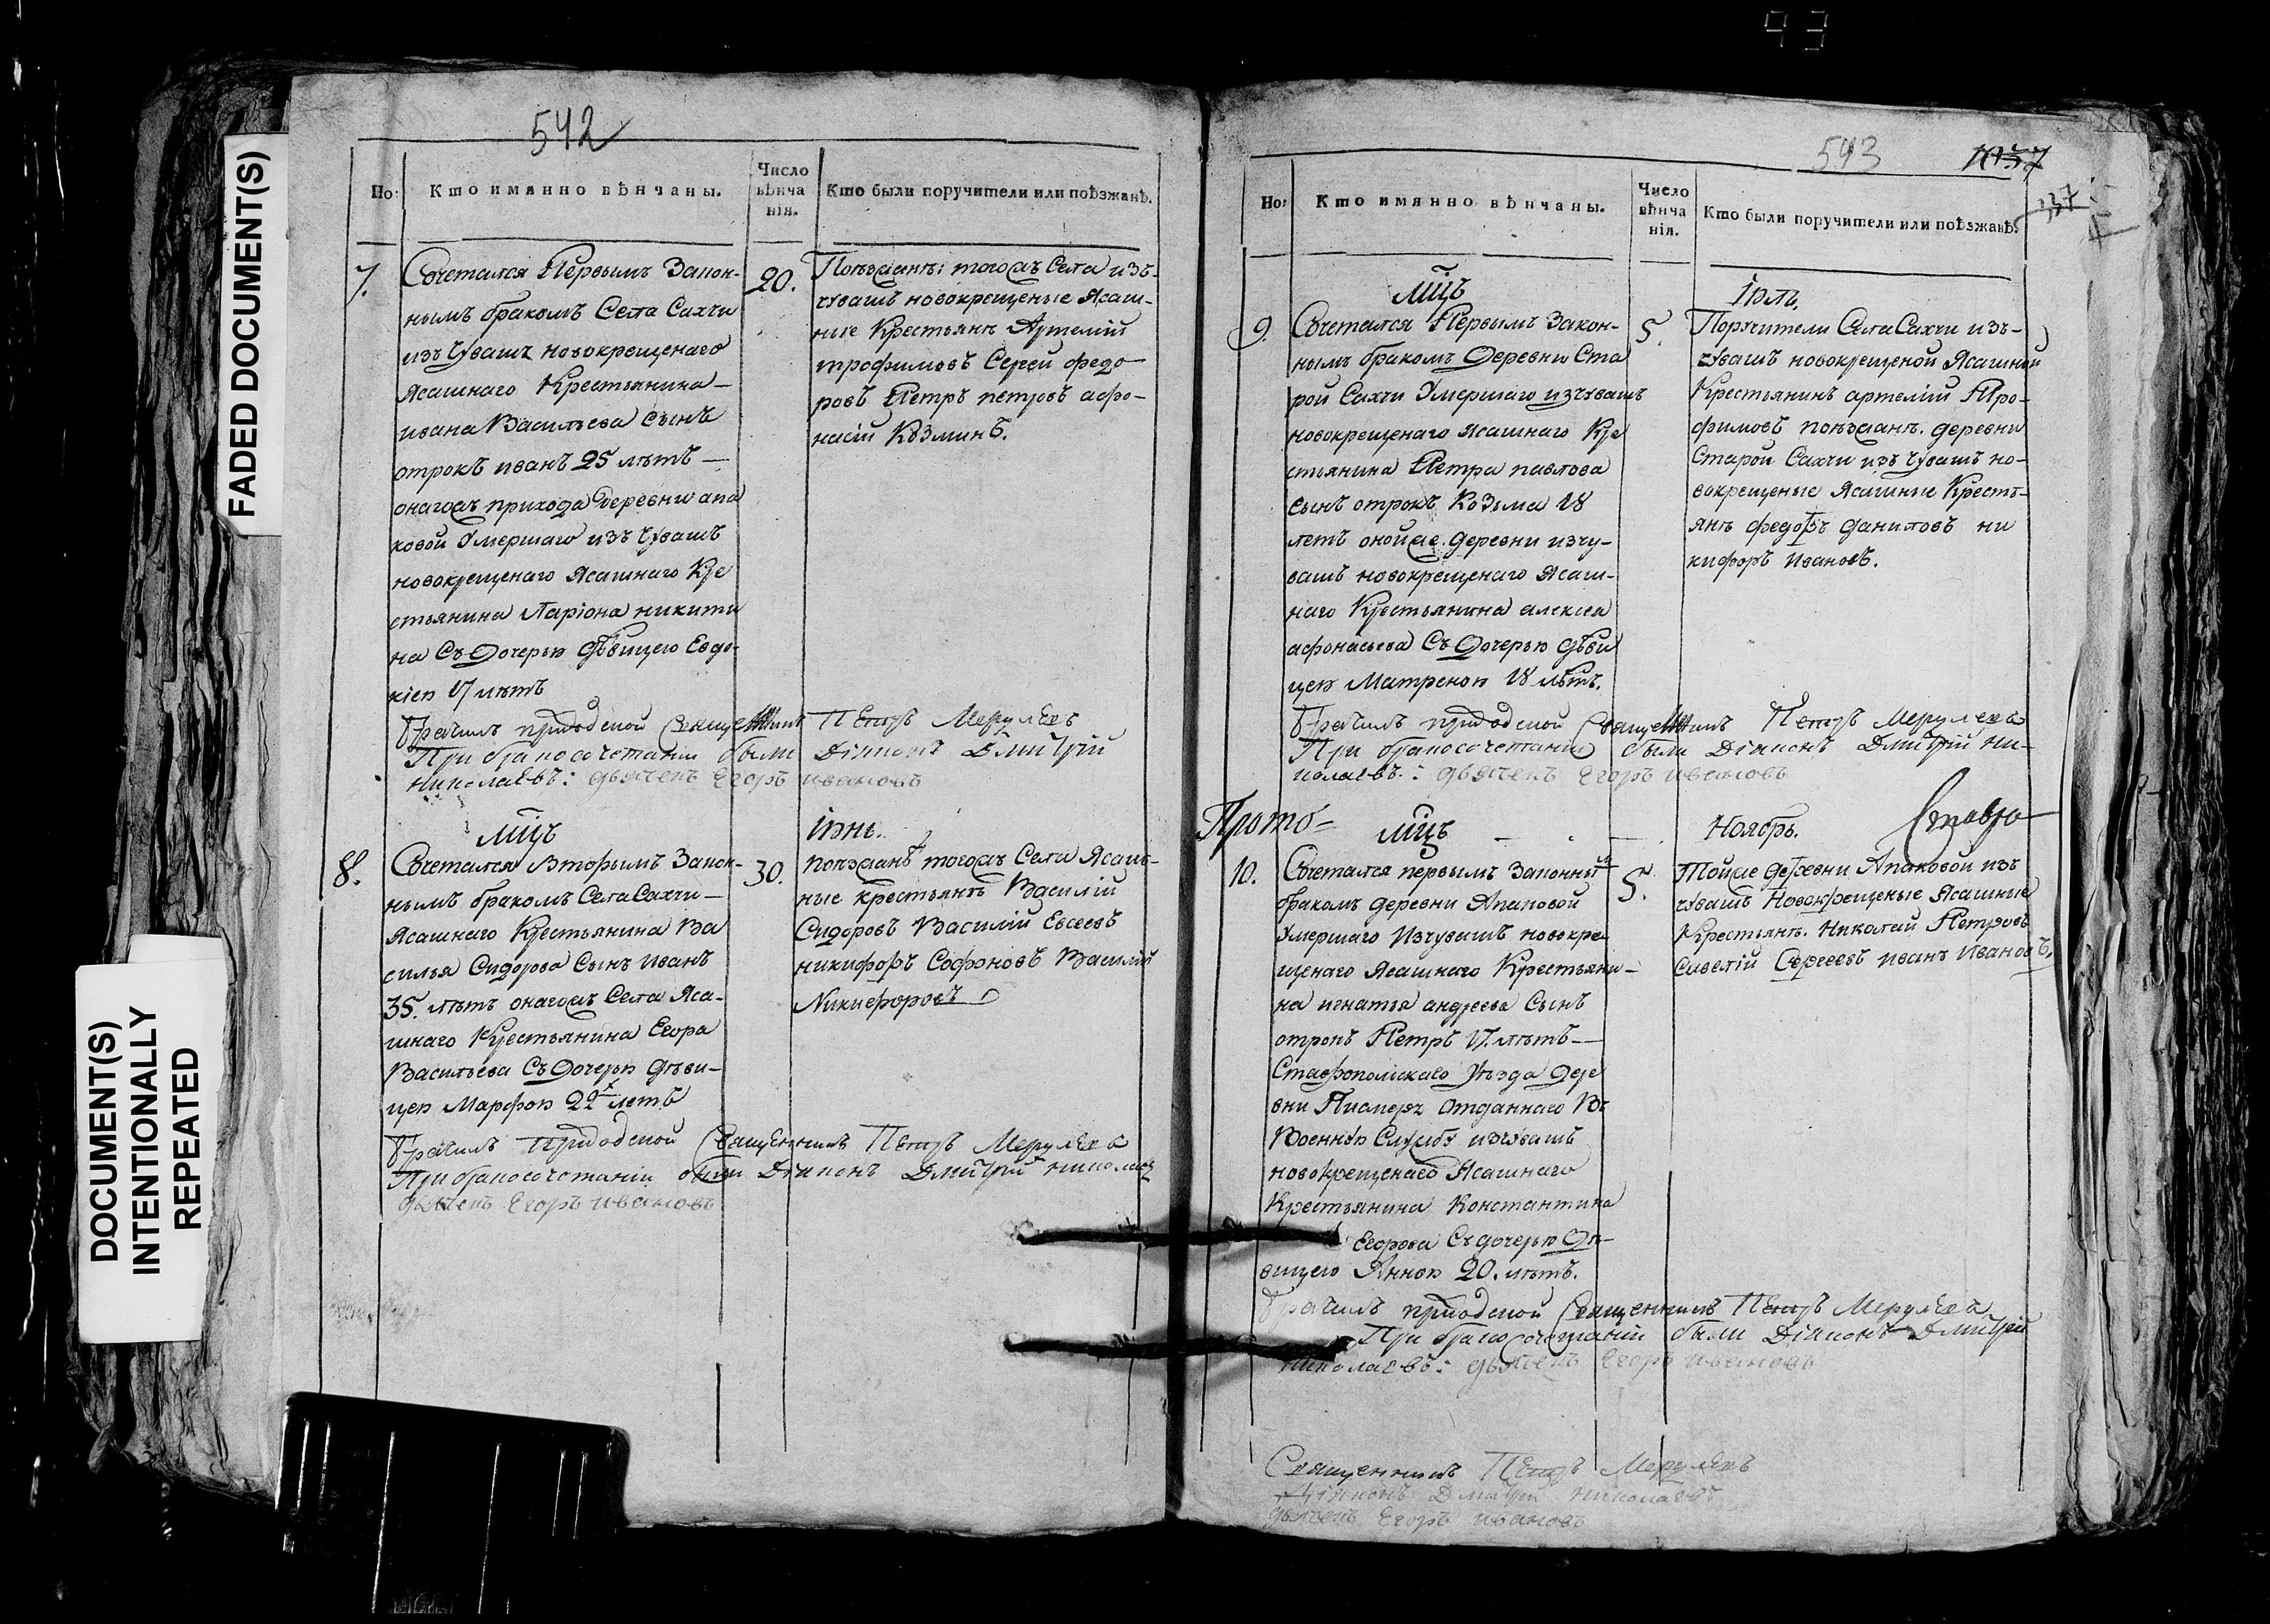 93
542
FADED DOCUMENT(S)
DOCUMENT(S)
INTENTIONALLY
REPEATED
Но:
Кто имянно вѣнчаны.
Число
вѣнча
нія.
Кто были поручители или поѣзжанѣ.
7.
Сочетался Первымъ Закон-
нымъ бракомъ Села Сахчи
изъ Чувашъ новокрещенаго
Ясашнаго Крестьянина
ивана Васильева Сынъ
отрокъ иванъ 25 лѣтъ
онагожъ прихода Деревни апа
ковой Умершаго изъ Чувашъ
новокрещенаго Ясашнаго Кре
стьянина Ларіона никити
на Съ Дочерью дѣвицею Евдо-
кіею 17 лѣтъ
20.
Поѣзжанѣ: тогожъ Села изъ-
чувашъ новокрещеные Ясаш-
ные Крестьянѣ Артемій
трофимовъ Сергей федо
ровъ Петръ петровъ афо-
насій Козминъ.
Вѣнчалъ приходской Священникъ Петръ
При бракосочетаніи были Діяконъ Дмитрій
николаевъ: дьячекъ Егоръ ивановъ
мцъ
іюнь.
8.
Сочетался Вторымъ Закон-
нымъ бракомъ Села Сахчи
Ясашнаго Крестьянина Ва
силья Сидорова Сынъ Иванъ
35. лѣтъ онагожъ Села Яса-
шнаго Крестьянина Егора
Васильева Съ Дочерью дѣви-
цею Марфою 22 летъ
30.
поѣзжанѣ тогожъ Села Ясаш-
ные крестьянѣ Василій
Сидоровъ Василій Евсеевъ
никифоръ Софоновъ Василій
Никифоровъ
приходской Священникъ Петръ
При бракосочетаніи были Діяконъ Дмитрій николаевъ
дьячекъ Егоръ ивановъ
543
1037
137
Но:
Кто имянно вѣнчаны.
Число
вѣнча
нія.
Кто были поручители или поѣзжанѣ.
мцъ
іюль.
9.
Сочетался Первымъ Закон-
нымъ бракомъ Деревни Ста
рой Сахчи Умершаго изчувашъ
новокрещенаго ясашнаго Кре
стьянина Петра павлова
Сынъ отрокъ Козьма 18
летъ онойже деревни изчу-
вашъ новокрещенаго Ясаш-
наго Крестьянина алексея
афонасьева Съ Дочерью дѣви
цею Матреною 18 лѣтъ.
5.
Поручители Села Сахчи изъ-
чувашъ новокрещеной Ясашной
Крестьянинъ артемій Тро-
фимовъ поѣзжанѣ. деревни
Старой Сахчи изъ Чувашъ но-
вокрещеные Ясашные Кресть-
янѣ федотъ даниловъ ни
кифоръ Ивановъ.
приходской Священникъ Петръ
При бракосочетаніи были Діяконъ Дмитрій ни-
колаевъ: дьячекъ Егоръ ивановъ
Прото=
мцъ
Ноябрь.
10.
Сочетался первымъ Законный
бракомъ деревни Апаковой
Умершаго Изчувашъ новокре
щенаго Ясашнаго Крестьяни-
на игнатья андреева Сынъ
отрокъ Петръ 17. лѣтъ
Ставропольскаго Уѣзда Дере
вни отданнаго Въ
Военную Службу изчувашъ
новокрещенаго Ясашнаго
Крестьянина Константина
Егорова Съ дочерью Дѣ-
вицею Анною 20. лѣтъ.
5.
Тойже деревни Апаковой изъ
чувашъ Новокрещеные Ясашные
Крестьянѣ. Николай Петровъ
Савелій Сергеевъ иванъ Ивановъ.
приходской Священникъ Петръ
При бракосочетаніи были Діяконъ Дмитрій
николаевъ: дьячекъ Егоръ ивановъ
Священникъ Петръ
Діяконъ Дмитрій николаевъ
дьячекъ Егоръ ивановъ